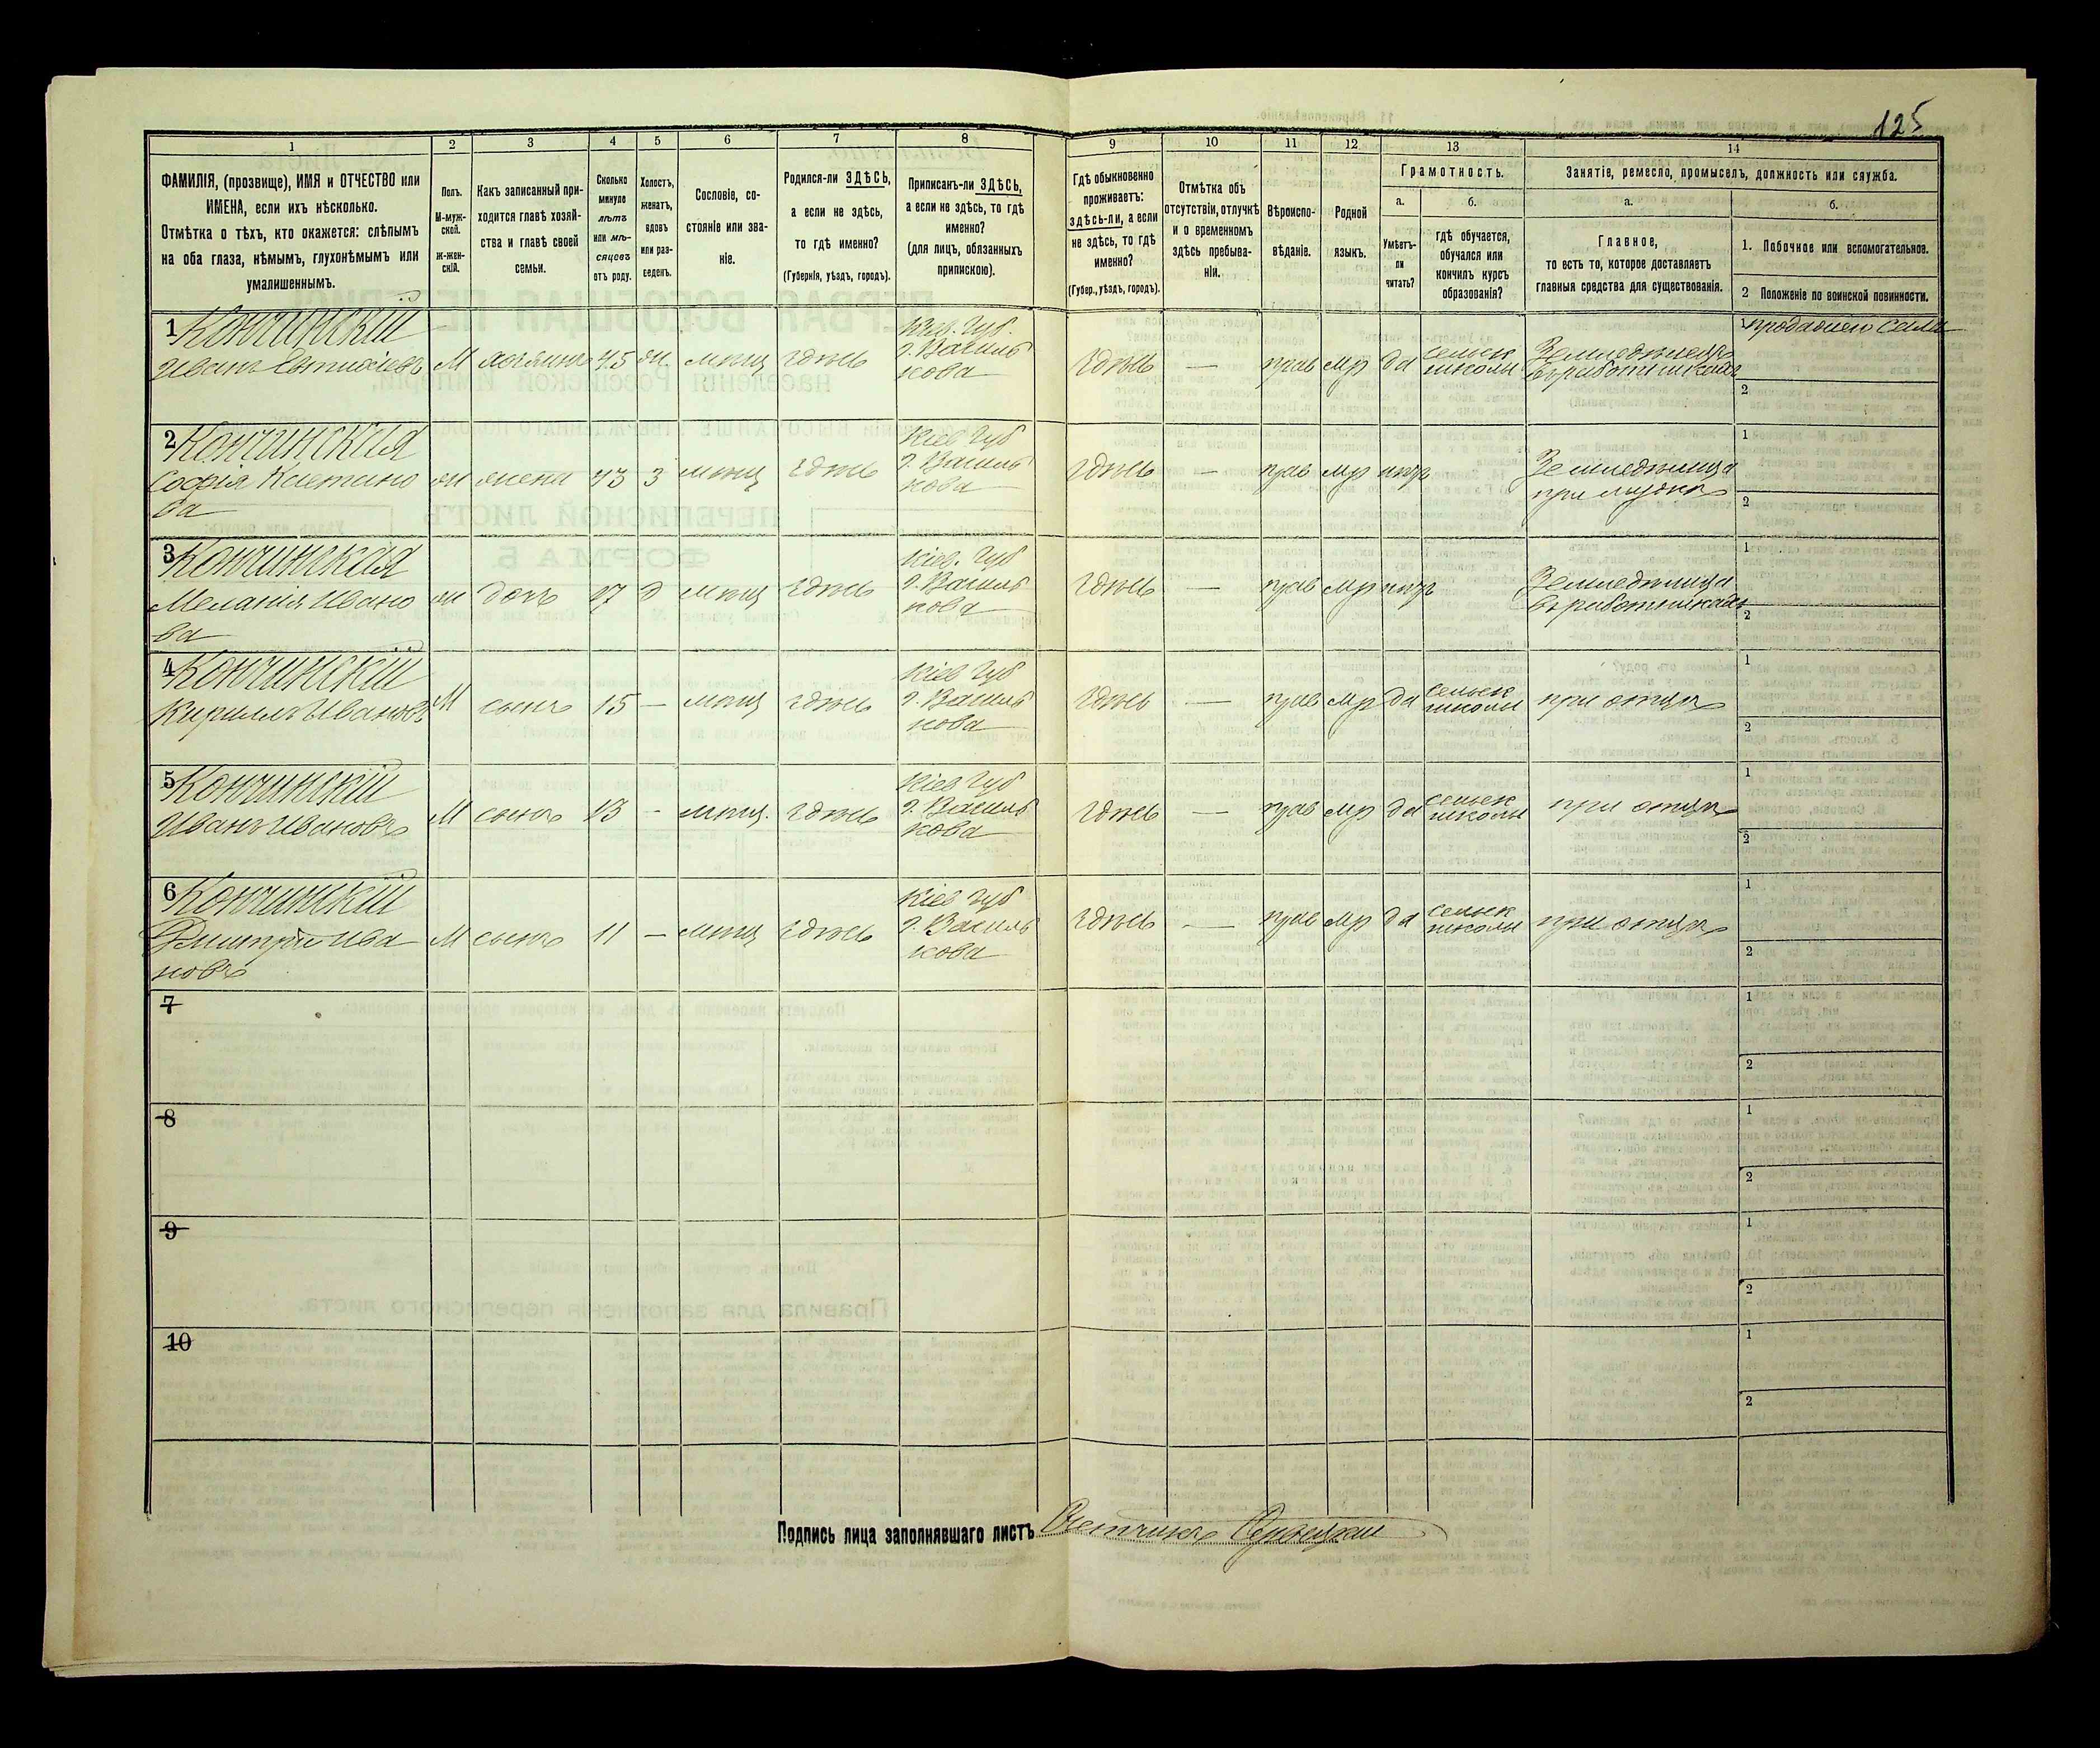 125
1
2
3
4
5
6
7
8
9
10
11
12
13
14
ФАМИЛІЯ, (прозвище), ИМЯ и ОТЧЕСТВО или
ИМЕНА, если ихъ нѣсколько.
Отмѣтка о тѣхъ, кто окажется: слѣпымъ
на оба глаза, нѣмымъ, глухонѣмымъ или
умалишеннымъ.
Полъ.
М-муж-
ской.
ж-жен-
скій.
Какъ записанный при-
ходится главѣ хозяй-
ства и главѣ своей
семьи.
Сколько
минуло
лѣтъ
или мѣ-
сяцевъ
отъ роду.
Холостъ,
женатъ,
вдовъ
или раз-
веденъ.
Сословіе, со-
стояніе или зва-
ніе.
Родился-ли ЗДѢСЬ,
а если не здѣсь,
то гдѣ именно?
(Губернія, уѣздъ, городъ).
Приписанъ-ли ЗДѢСЬ,
а если не здѣсь, то гдѣ
именно?
(для лицъ, обязанныхъ
припискою).
Гдѣ обыкновенно
проживаетъ:
здѣсь-ли, а если
не здѣсь, то гдѣ
именно?
(Губер., уѣздъ, городъ).
Отмѣтка объ
отсутствіи, отлучкѣ
и о временномъ
здѣсь пребыва-
ніи.
Вѣроиспо-
вѣданіе.
Родной
языкъ.
Грамотность.
а.
Умѣетъ-
ли
читать?
б.
гдѣ обучается,
обучался или
кончилъ курсъ
образованія?
Занятіе, ремесло, промыселъ, должность или служба.
а.
Главное,
то есть то, которое доставляетъ
главныя средства для существованія.
б.
1. Побочное или вспомогательное.
2 Положеніе по воинской повинности.
1 Кончинскій
Иванъ
М хозяинъ 45 ж. мѣщ здѣсь
Кіев. Губ.
г. Василь
кова
здѣсь — прав мр да
сельск
школы
Земледѣлецъ
въ работникахъ
1
2
2 Кончинская
Софія Каетано
ва
ж жена 43 З мѣщ здѣсь
Кіев Губ
г. Василь
кова
здѣсь — прав мр нѣтъ
Земледѣлица
при мужѣ
1
2
3 Кончинская
Меланія Ивано
ва
ж дочь 27 д мѣщ здѣсь
Кіев. Губ
г. Василь
кова
здѣсь — прав мр нѣтъ
Земледѣлица
въ работникахъ
1
2
4 Кончинскій
Кириллъ Ивановъ
М сынъ 15 — мѣщ здѣсь
Кіев Губ
г. Василь
кова
здѣсь — прав мр да
сельск
школы
при отцѣ
1
2
5 Кончинскій
Иванъ Ивановъ
М сынъ 13 - мѣщ. здѣсь
Кіев Губ
г. Василь
кова
здѣсь — прав мр да
сельск
школы
при отцѣ
1
2
6 Кончинскій
Дмитрій Ива
новъ
М сынъ 11 — мѣщ здѣсь
Кіев Губ
г. Василь
кова
здѣсь — прав мр да
сельск
школы
при отцѣ
1
2
7
1
2
8
1
2
9
1
2
10
1
2
Подпись лица заполнявшаго листъ Счетчикъ